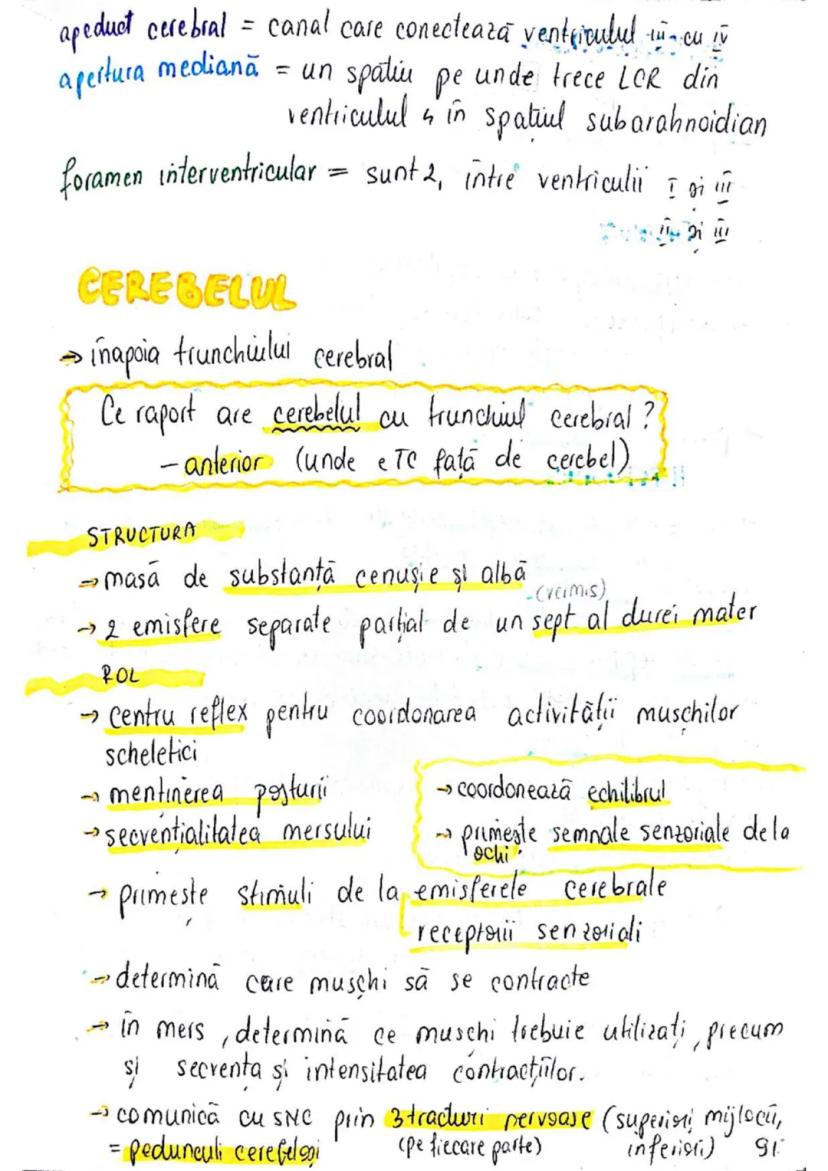 apeduct cerebral = canal care conectează ventriculul III cu IV
apertura mediană = un spatiu pe unde trece LCR din
ventriculul 4 în spatiul subarahnoidian
foramen interventricular = sunt 2, între ventriculii I și III
II și III
CEREBELUL
→ înapoia trunchiului cerebral
Ce raport are cerebelul cu trunchiul cerebral?
- anterior (unde e TC față de cerebel)
STRUCTURA
→ masă de substanță cenușie și albă
(vermis)
→ 2 emisfere separate parțial de un sept al durei mater
ROL
→ centru reflex pentru coordonarea activității mușchilor
scheletici
→ mentinerea posturii
→ secvențialitatea mersului
→ coordonează echilibrul
→ primește semnale senzoriale de la
ochi
→ primește stimuli de la emisferele cerebrale
receptorii senzoriali
→ determină care mușchi să se contracte
→ în mers, determină ce mușchi trebuie utilizați, precum
și secvența și intensitatea contracțiilor.
→ comunică cu SNC prin 3 tracturi nervoase (superiori, mijlocii,
= pedunculi cerebeloși (pe fiecare parte) inferiori) 91